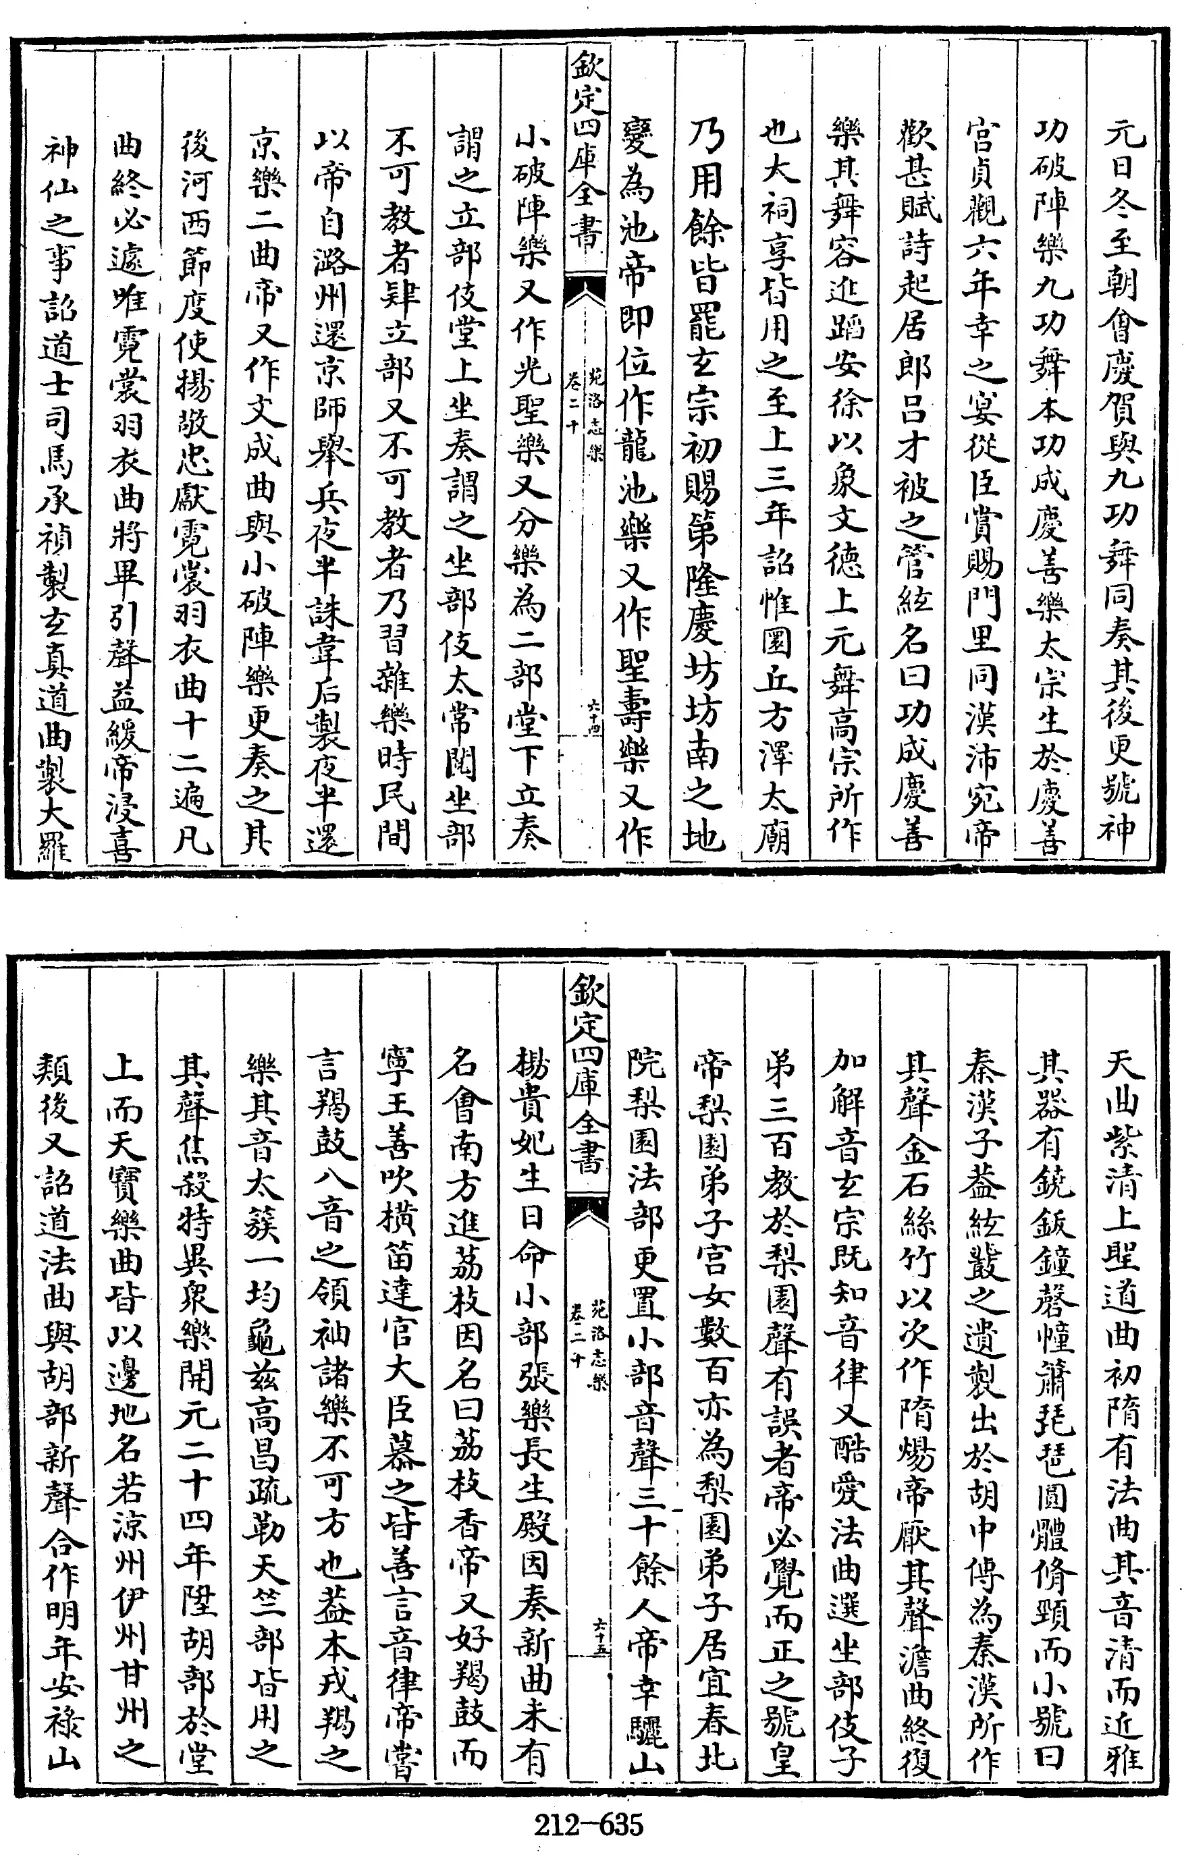 元日冬至朝會慶賀與九功舞同奏其後更號神
功破陣樂九功舞本功成慶善樂太宗生於慶善
宮貞觀六年幸之宴從臣賞賜門里同漢沛宛帝
歡甚賦詩起居郎呂才被之管絃名曰功成慶善
樂其舞容進蹈安徐以象文德上元舞高宗所作
也大祠享皆用之至上三年詔惟圜丘方澤太廟
乃用餘皆罷玄宗初賜第隆慶坊坊南之地
變為池帝即位作龍池樂又作聖壽樂又作
欽定四庫全書
苑洛志樂
卷二十
六十四
小破陣樂又作光聖樂又分樂為二部堂下立奏
謂之立部伎堂上坐奏謂之坐部伎太常閱坐部
不可教者肄立部又不可教者乃習雜樂時民間
以帝自潞州還京師舉兵夜半誅韋后製夜半還
京樂二曲帝又作文成曲與小破陣樂更奏之其
後河西節度使楊敬忠獻霓裳羽衣曲十二遍凡
曲終必遽唯霓裳羽衣曲將畢引聲益緩帝浸喜
神仙之事詔道士司馬承禎製玄真道曲製大羅
天曲紫清上聖道曲初隋有法曲其音清而近雅
其器有鐃鈸鐘磬幢簫琵琶圓體脩頸而小號曰
秦漢子蓋絃鼗之遺製出於胡中傳為秦漢所作
其聲金石絲竹以次作隋煬帝厭其聲澹曲終復
加解音玄宗既知音律又酷愛法曲選坐部伎子
弟三百教於梨園聲有誤者帝必覺而正之號皇
帝梨園弟子宮女數百亦為梨園弟子居宜春北
院梨園法部更置小部音聲三十餘人帝幸驪山
欽定四庫全書
苑洛志樂
卷二十
六十五
楊貴妃生日命小部張樂長生殿因奏新曲未有
名會南方進荔枝因名曰荔枝香帝又好羯鼓而
寧王善吹橫笛達官大臣慕之皆善言音律帝嘗
言羯鼓八音之領袖諸樂不可方也蓋本戎羯之
樂其音太簇一均龜茲高昌疏勒天竺部皆用之
其聲焦殺特異衆樂開元二十四年陞胡部於堂
上而天寶樂曲皆以邊地名若涼州伊州甘州之
類後又詔道法曲與胡部新聲合作明年安祿山
212-635